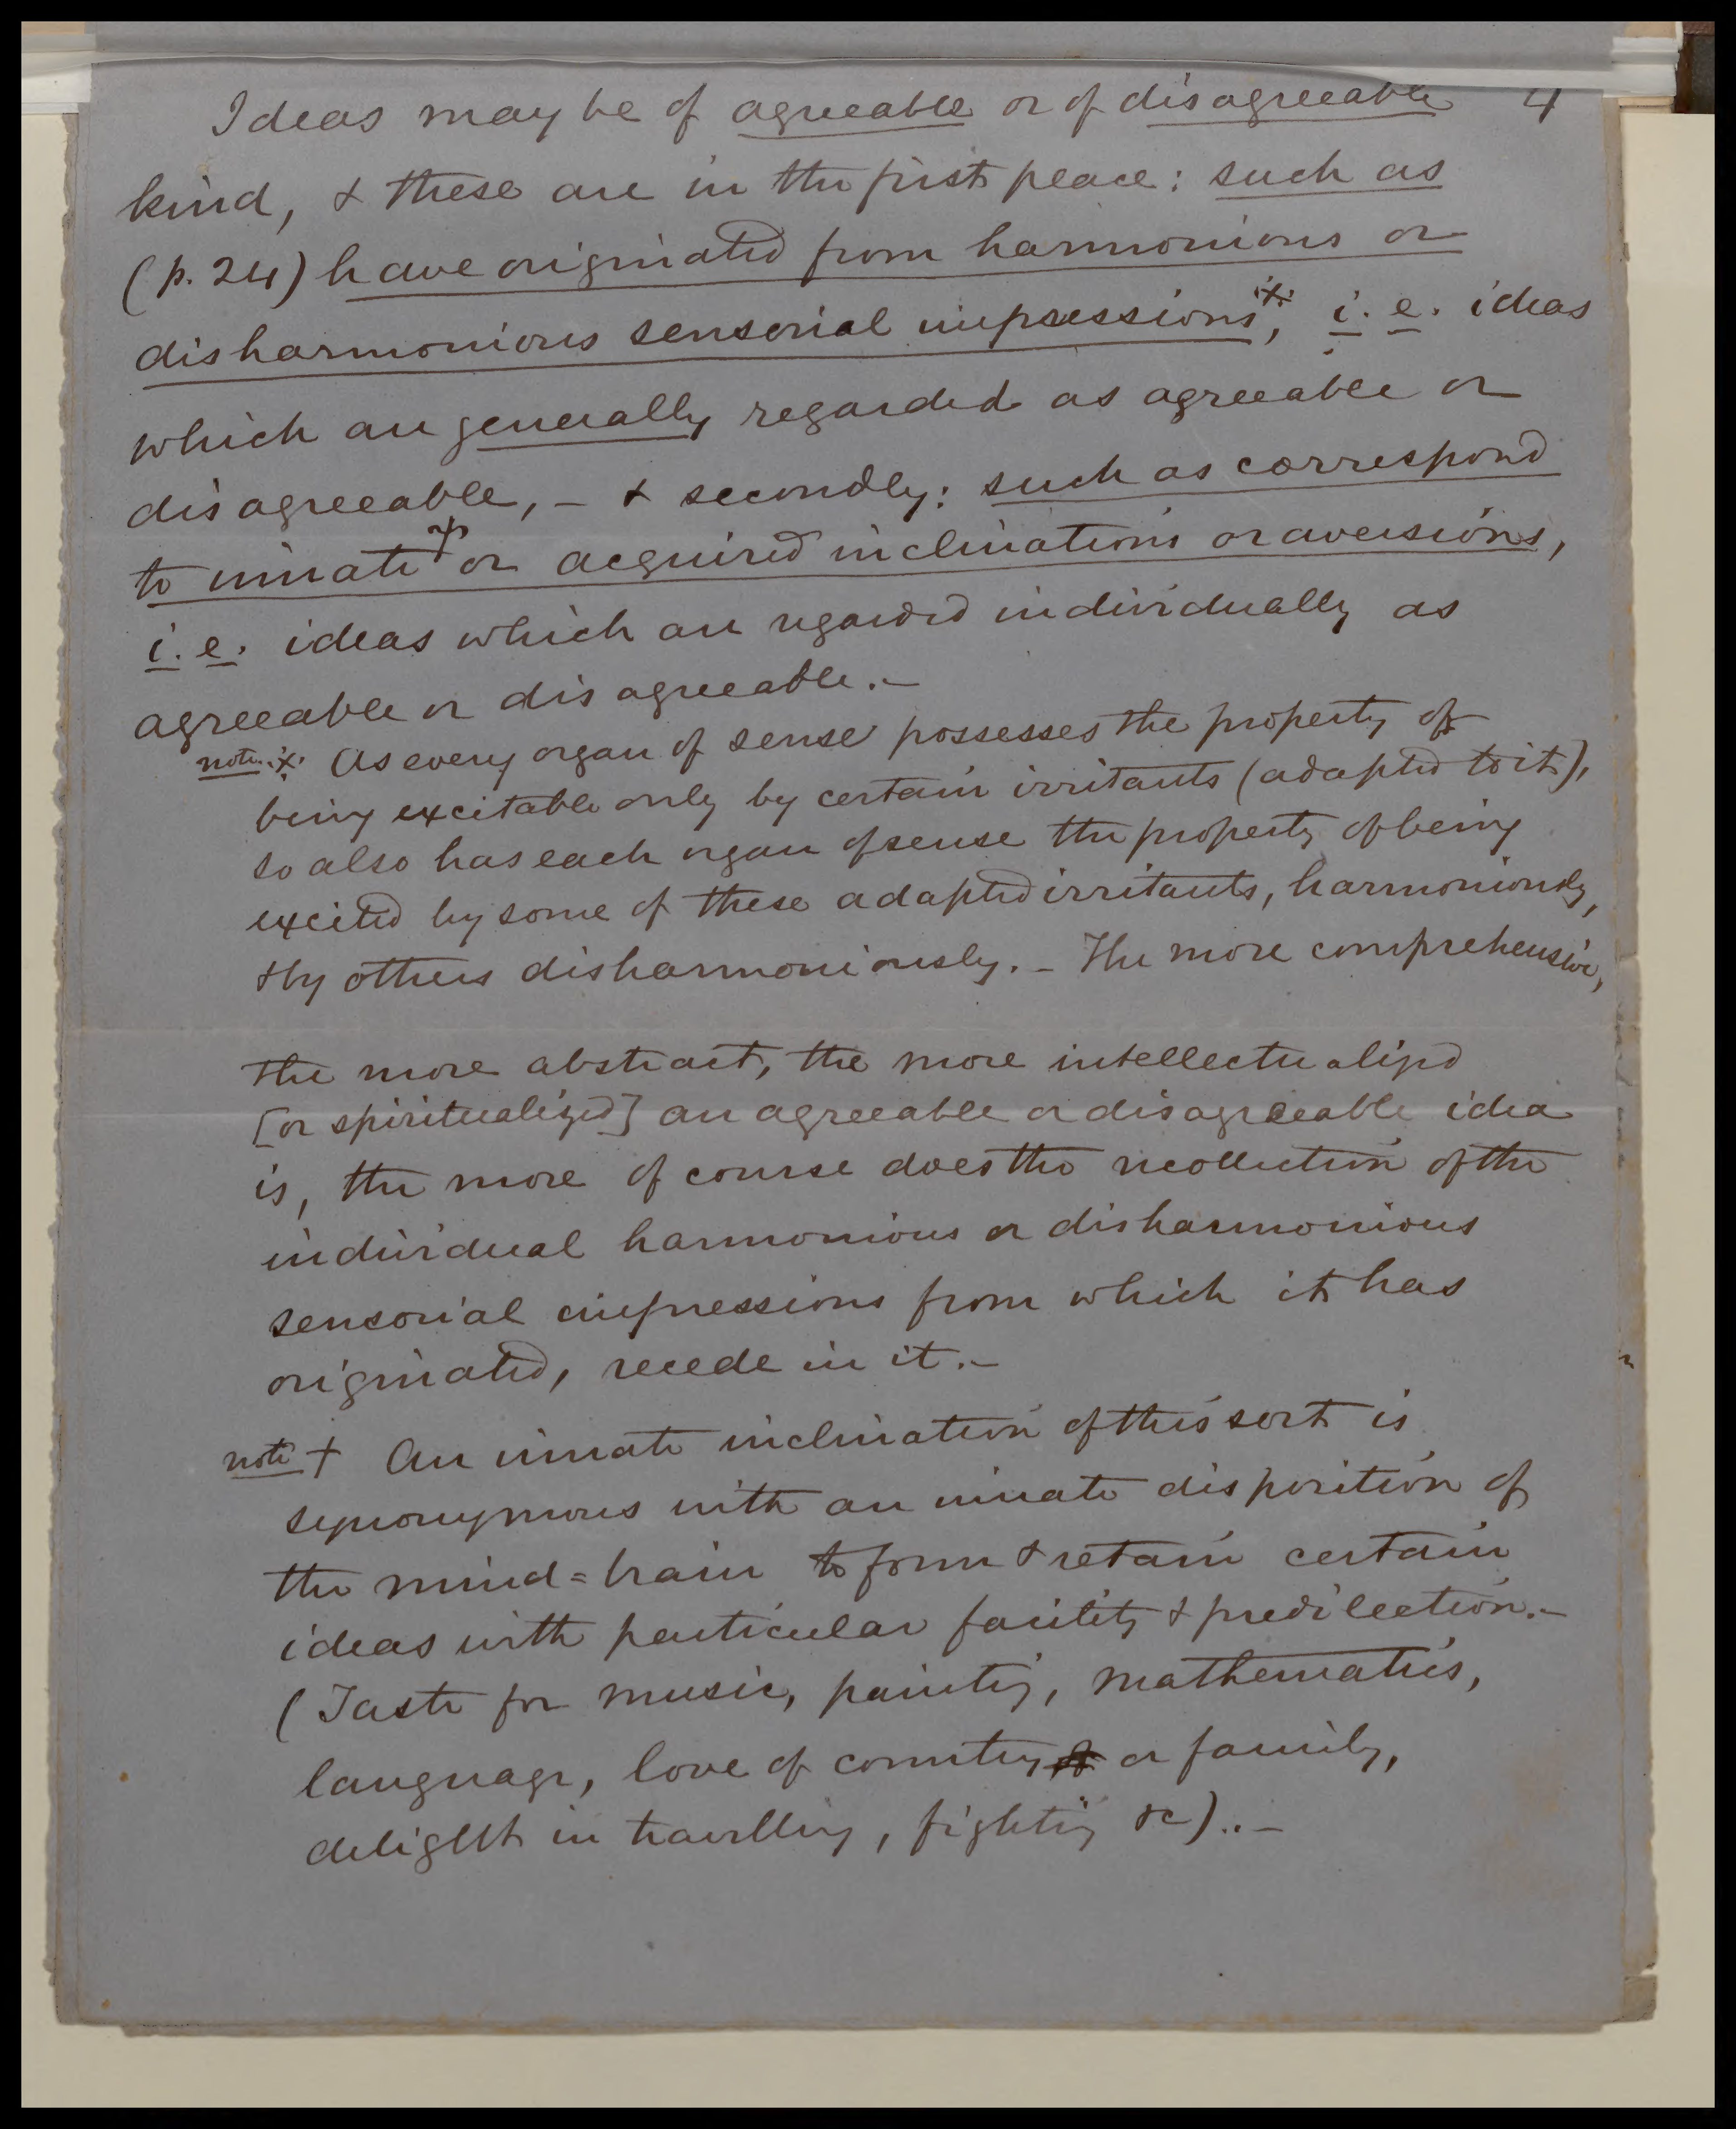 Ideas may be of agreeable or of disagreeable 4
kind, & these are in the first peace: such as
(p. 24) have originated from harmonious or
disharmonious sensorial impressions※, i. e. ideas
which are generally regarded as agreeable or
disagreeable, – & secondly: such as correspond
to innate† or acquired inclinations or aversions,
i. e. ideas which are regarded individually as
agreeable or disagreeable. –
note ※ As every organ of sense possesses the property of
being excitable only by certain irritants (adapted to it),
so also has each organ of sense the property of being
excited by some of these adapted irritants, harmoniously,
& by others disharmoniously. – The more comprehensive,
the more abstract, the more intellectualized
[or spiritualized] an agreeable or disagreeable idea
is, the more of course does the recollection of the
individual harmonious or disharmonious
sensorial impressions from which it has
originated, recede in it. –
note † An innate inclination of this sort is
synonymous with an innate disposition of
the mind=brain to form & retain certain
ideas with particular facility & predilection. –
(Taste for music, painting, mathematics,
language, love of country or family,
delight in travelling, fighting &c).. –